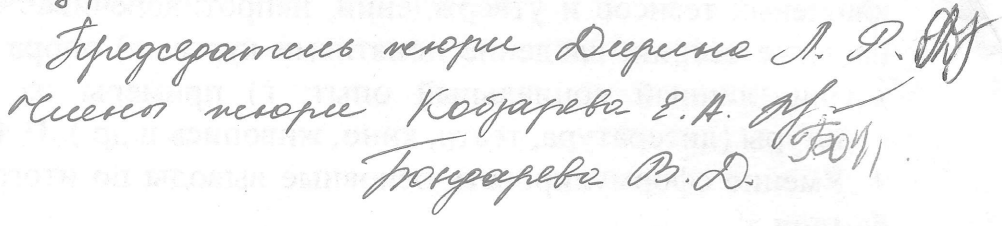 Председатель жюри Дирина Л. Р.
Члены жюри Кобзарева Е.А.
Бондарева В. Д.